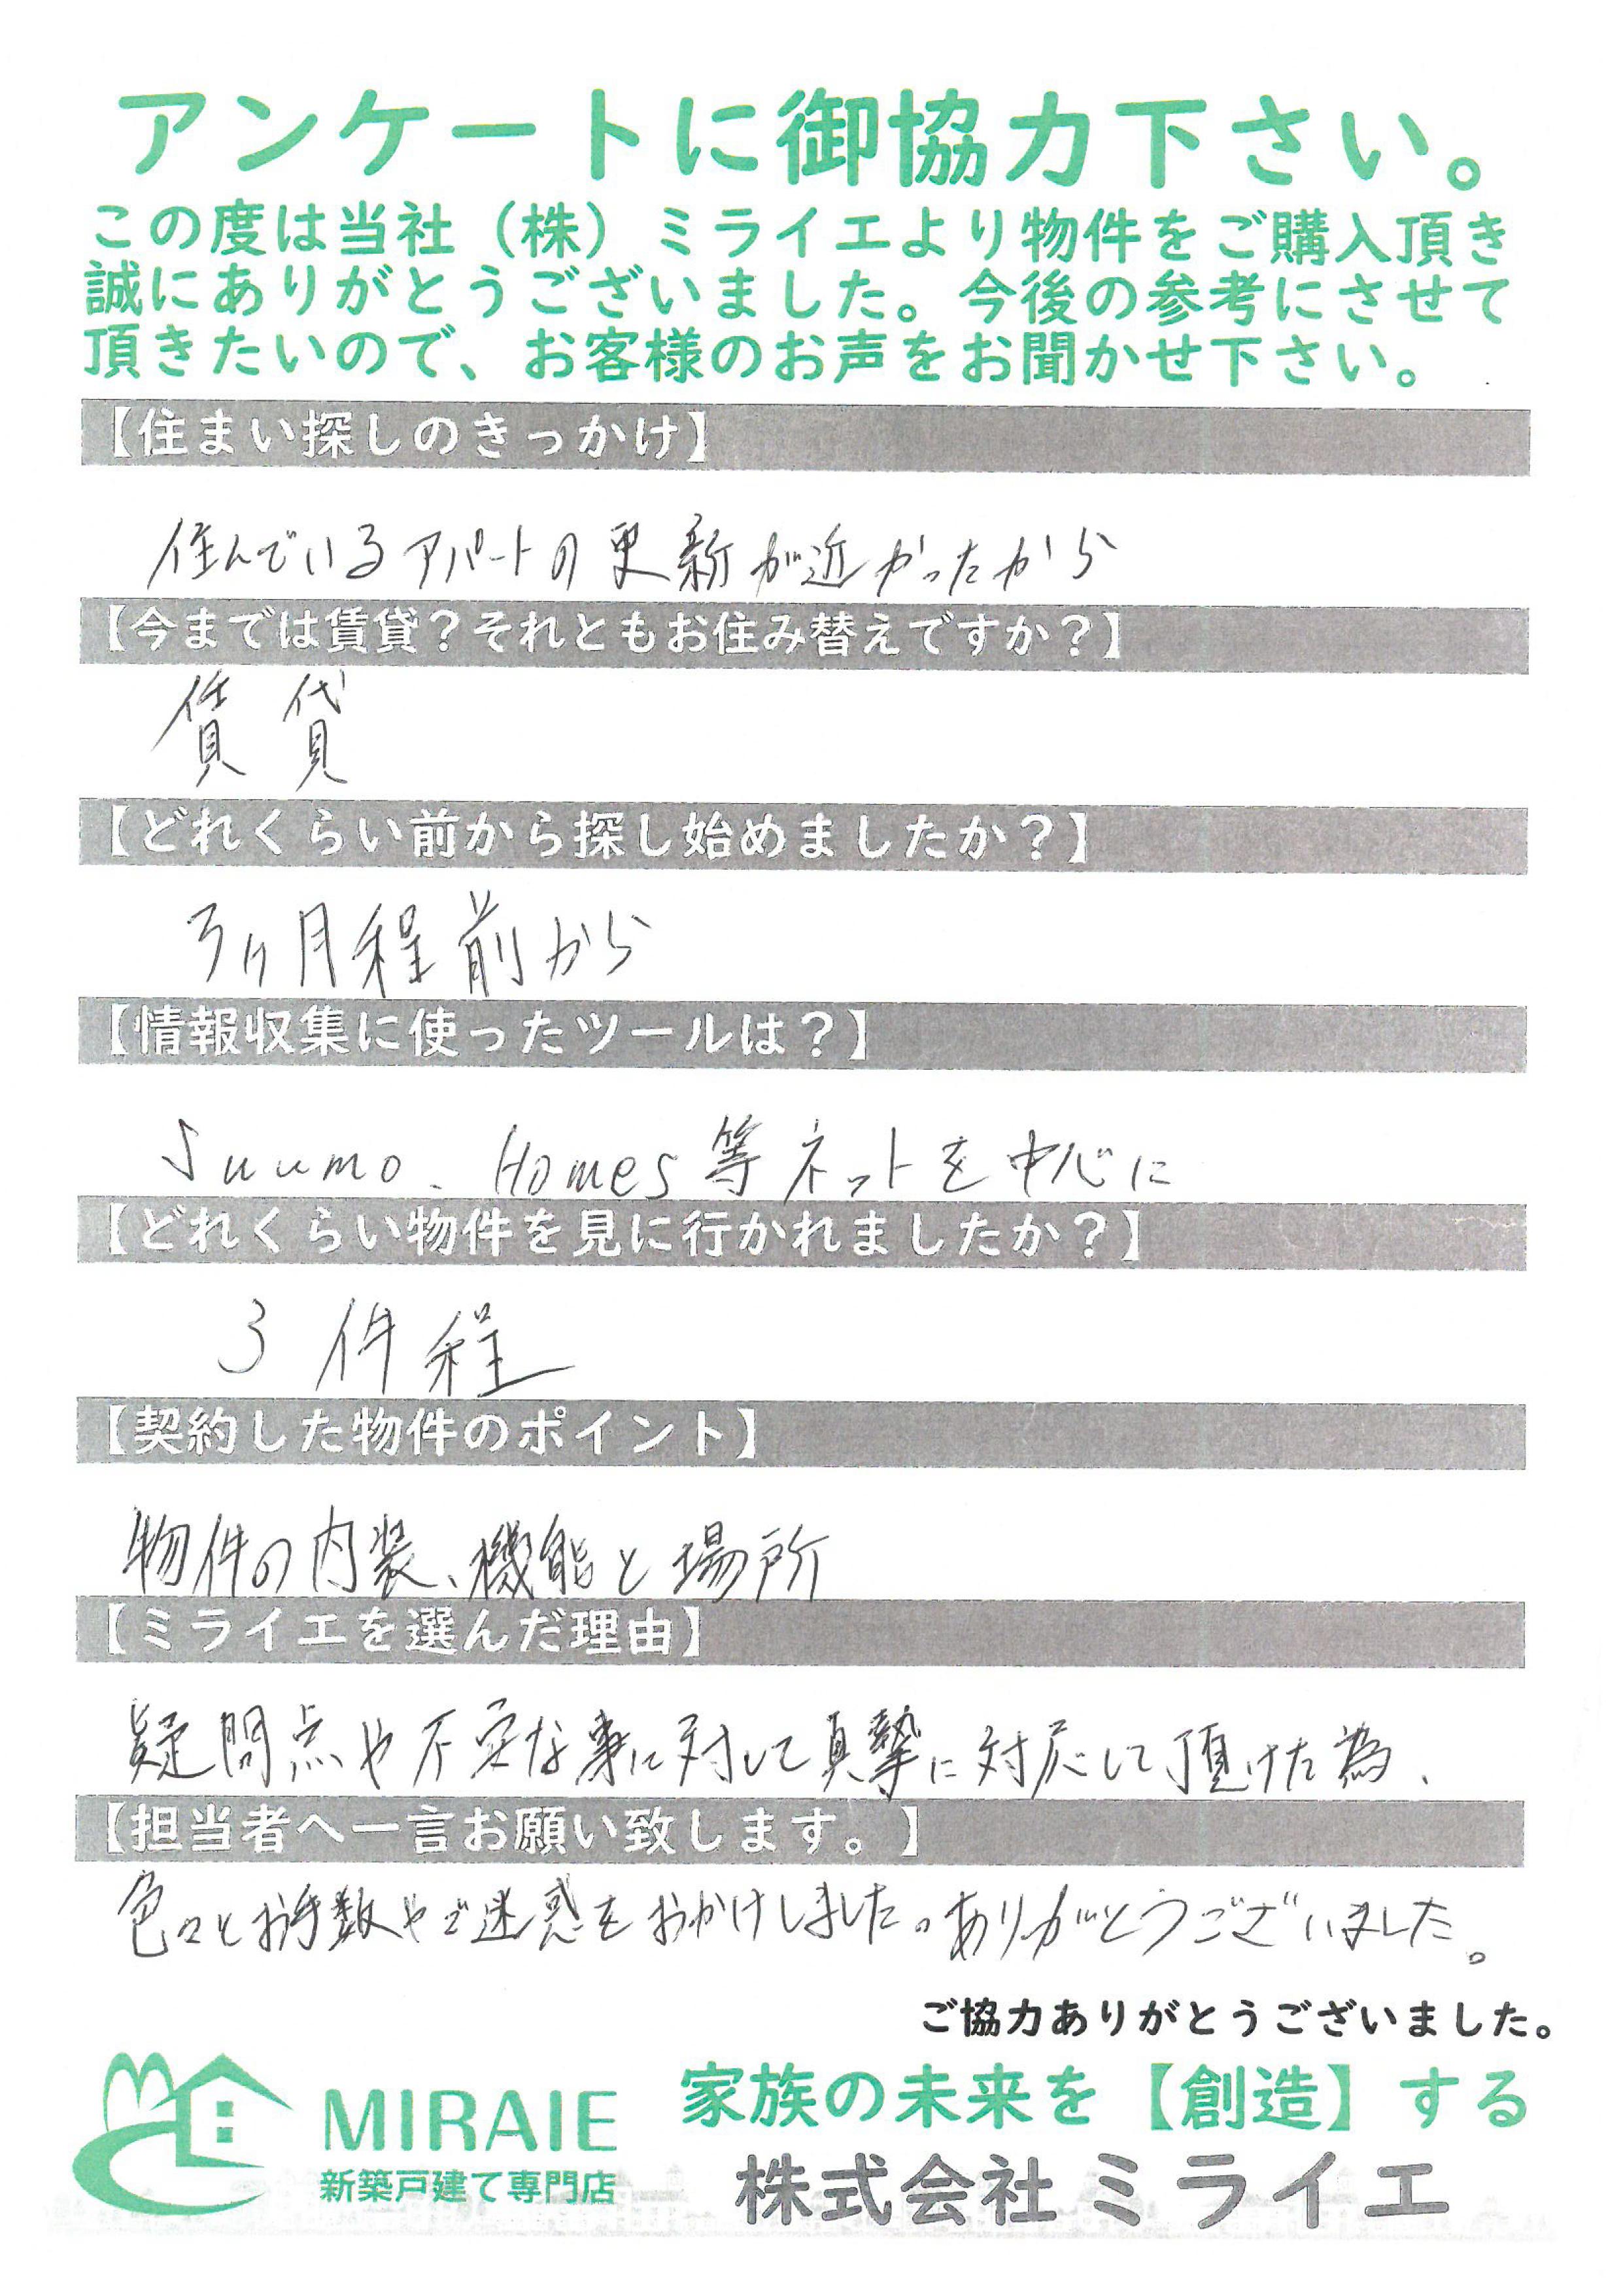 アンケートに御協力下さい。
この度は当社（株）ミライエより物件をご購入頂き
誠にありがとうございました。今後の参考にさせて
頂きたいので、お客様のお声をお聞かせ下さい。
【住まい探しのきっかけ】
住んでいるアパートの更新が近かったから
【今までは賃貸？それともお住み替えですか？】
賃貸
【どれくらい前から探し始めましたか？】
3ヶ月程前から
【情報収集に使ったツールは？】
Suumo、Homes等ネットを中心に
【どれくらい物件を見に行かれましたか？】
3件程
【契約した物件のポイント】
物件の内装、機能と場所
【ミライエを選んだ理由】
疑問点や不安な事に対して真摯に対応して頂けた為、
【担当者へ一言お願い致します。】
色々とお手数やご迷惑をおかけしました。ありがとうございました。
ご協力ありがとうございました。
MIRAIE
新築戸建て専門店
家族の未来を【創造】する
株式会社ミライエ